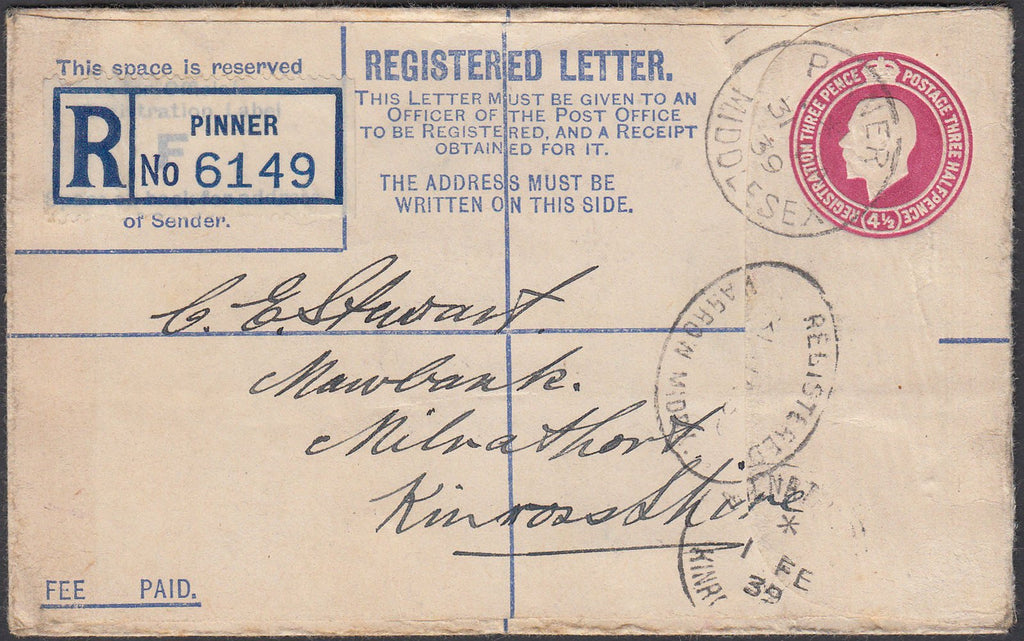 This space is reserved
R PINNER
No 6149
of Sender.
REGISTERED LETTER.
THIS LETTER MUST BE GIVEN TO AN
OFFICER OF THE POST OFFICE
TO BE REGISTERED, AND A RECEIPT
OBTAINED FOR IT.
THE ADDRESS MUST BE
WRITTEN ON THIS SIDE.
MIDDLESEX
31
39
REGISTRATION THREE PENCE
POSTAGE THREE HALFPENCE
4½
C. E. Stewart.
Mawbank.
Milnathort.
Kinrossshire
REGISTERED
HARROW MIDDX.
*
1 FE
39
FEE PAID.